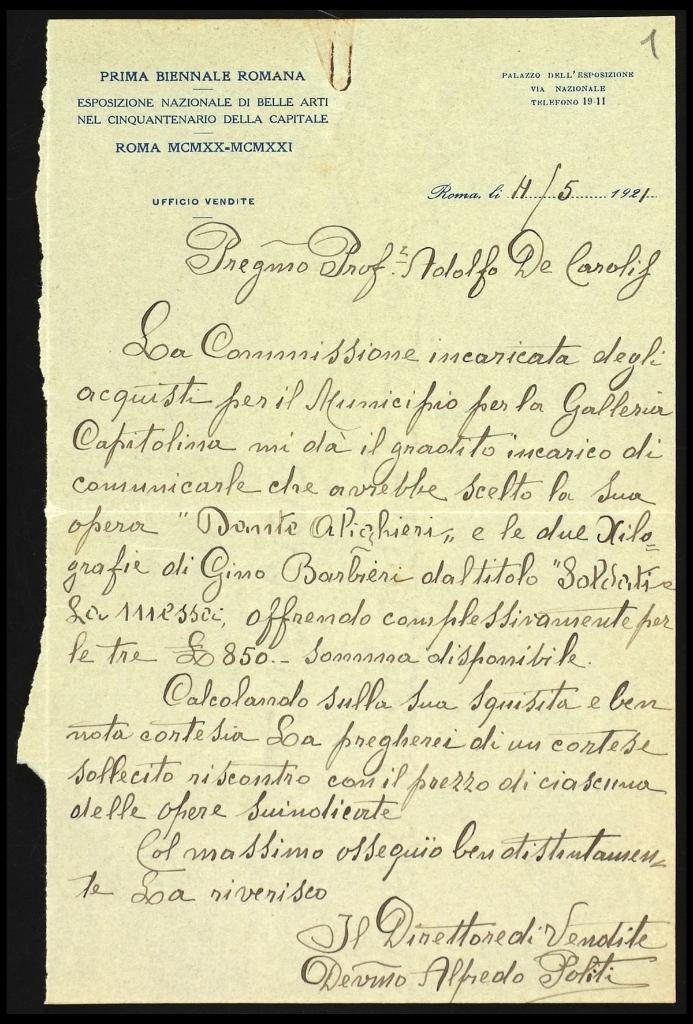 1
PRIMA BIENNALE ROMANA
ESPOSIZIONE NAZIONALE DI BELLE ARTI
NEL CINQUANTENARIO DELLA CAPITALE
ROMA MCMXX-MCMXXI
UFFICIO VENDITE
PALAZZO DELL'ESPOSIZIONE
VIA NAZIONALE
TELEFONO 19-11
Roma, li 11/5 1921
Pregmo Prof.r Adolfo De Carolis
La Commissione incaricata degli
acquisti per il Municipio per la Galleria
Capitolina mi dà il gradito incarico di
comunicarle che avrebbe scelto la sua
opera "Dante Alighieri„ e le due Xilo=
grafie di Gino Barbieri dal titolo "Soldati e
La messa, offrendo complessivamente per
le tre £ 850.- somma disponibile.
Calcolando sulla sua squisita e ben
nota cortesia La pregherei di un cortese
sollecito riscontro con il prezzo di ciascuna
delle opere suindicate
Col massimo ossequio ben distintamen=
te La riverisco
Il Direttore di Vendite
Devmo Alfredo Politi